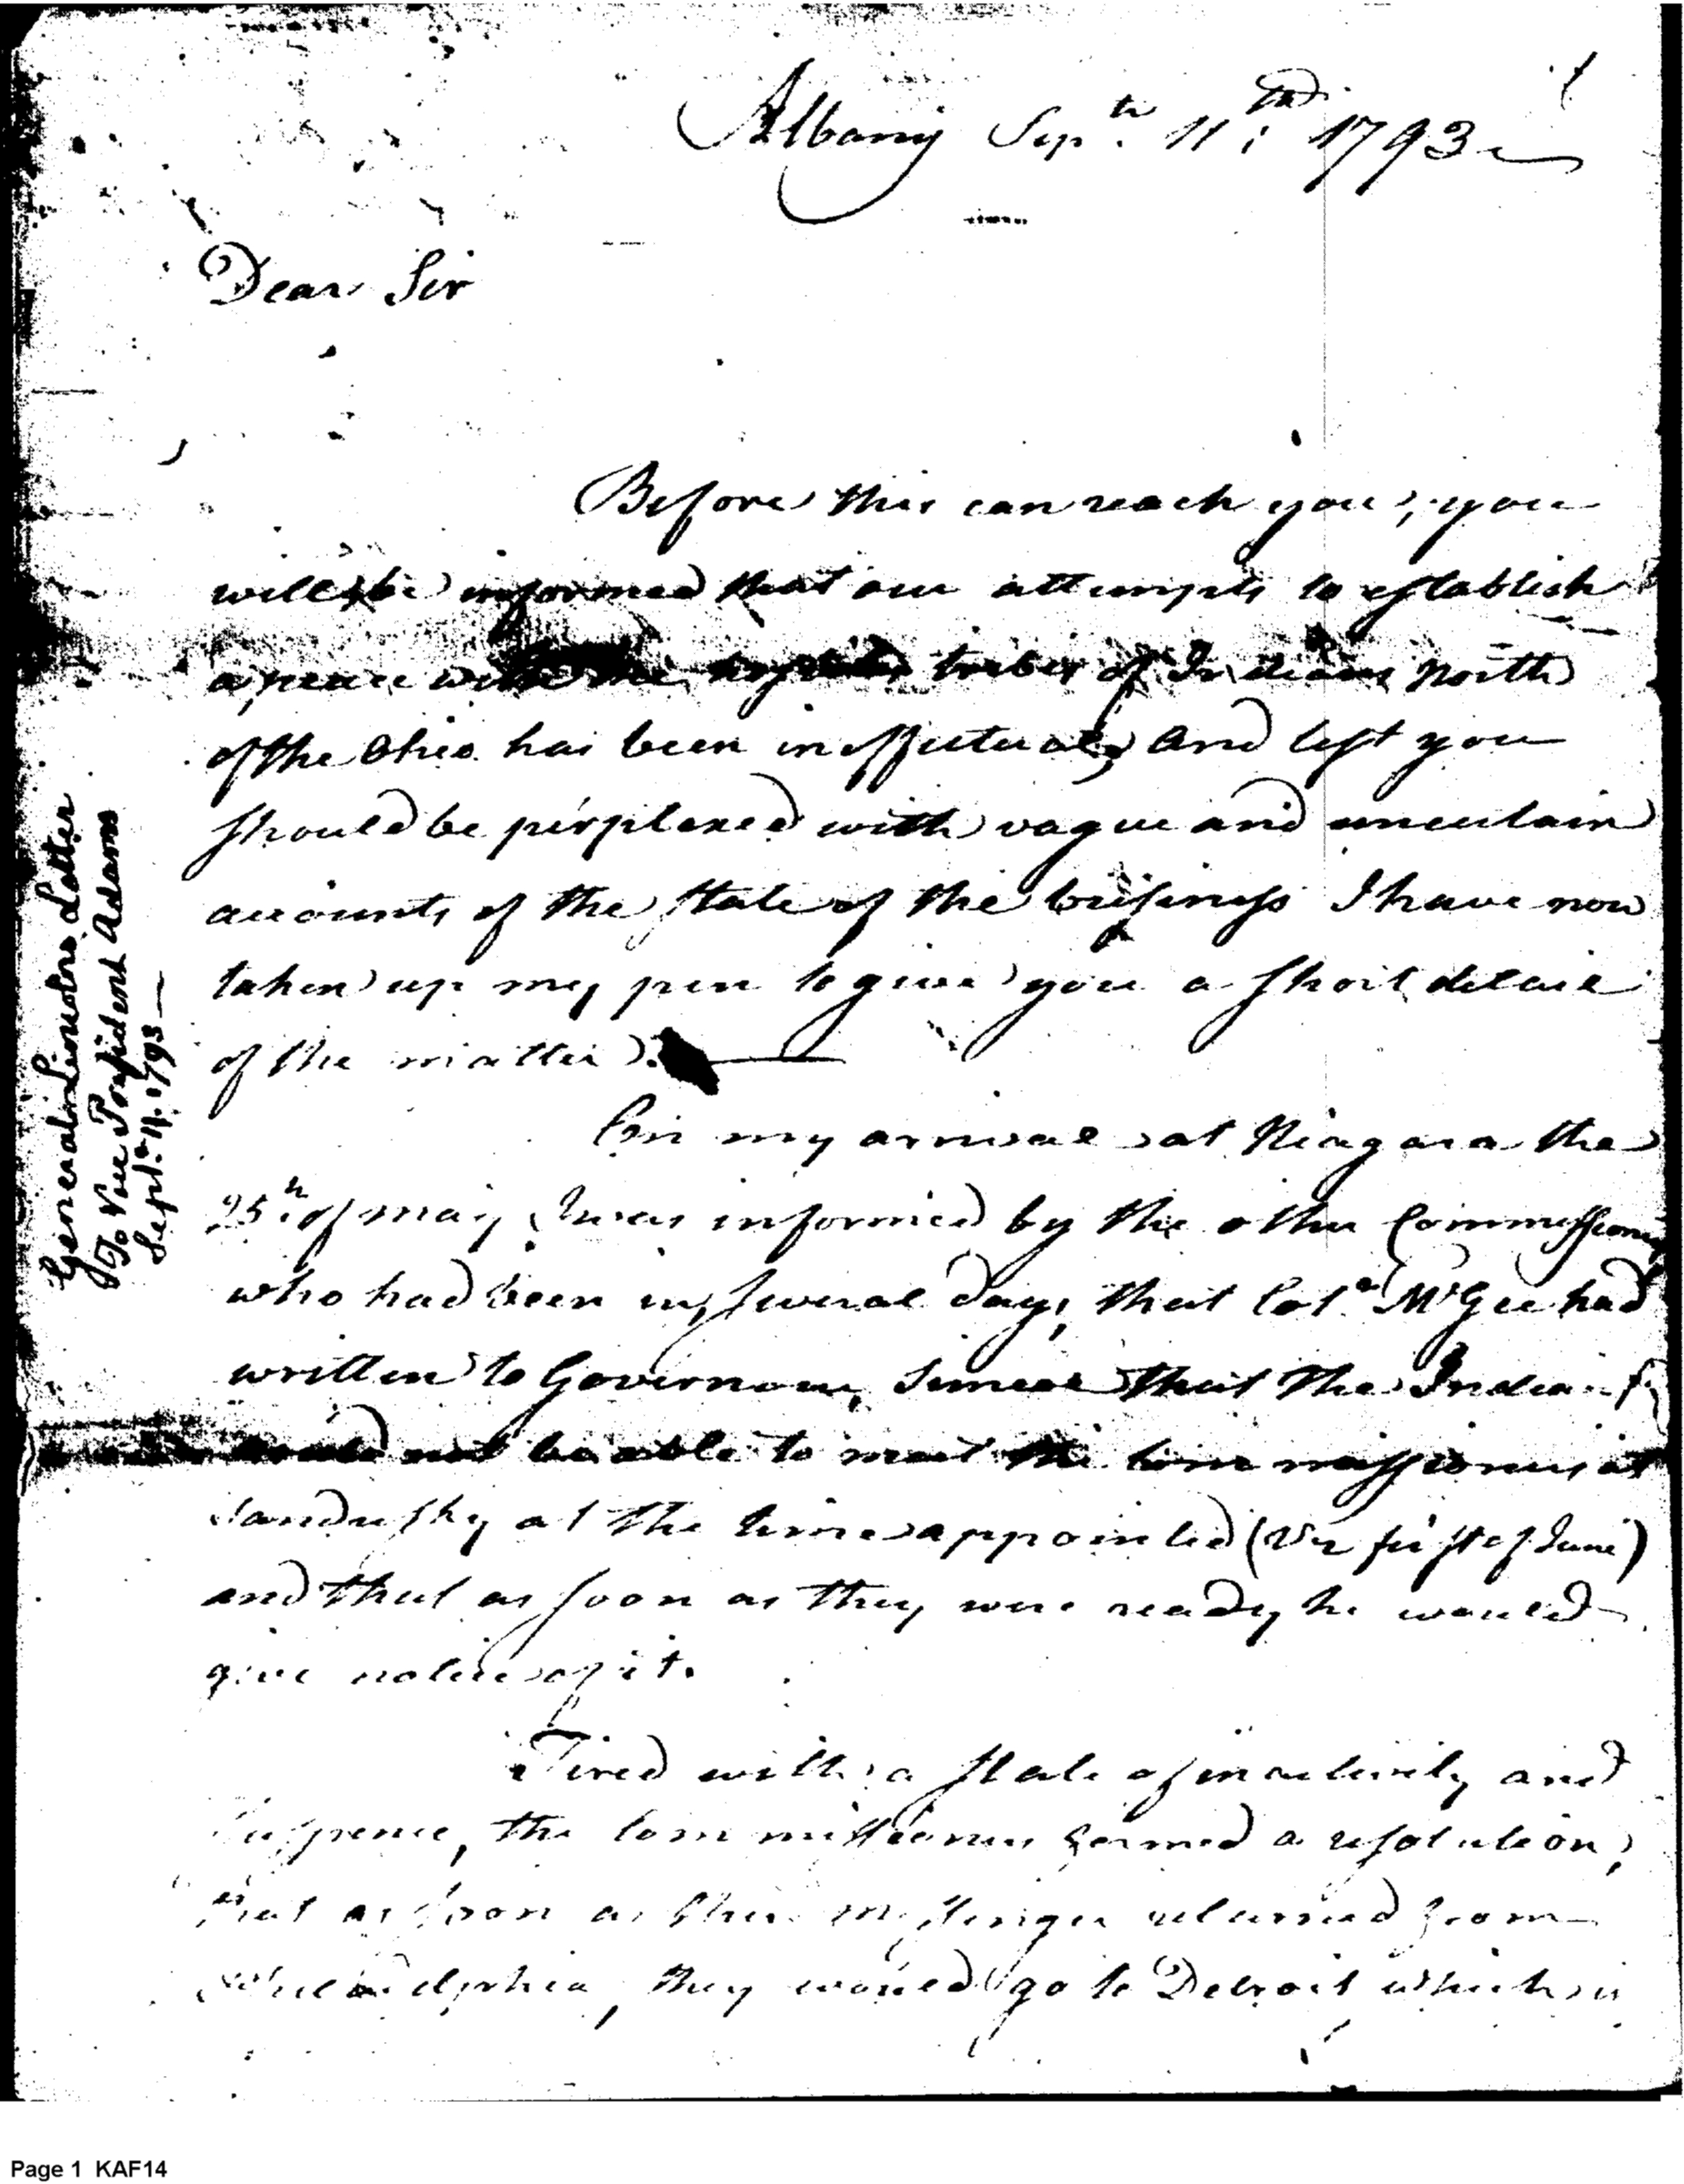 Albany Sepᵗʳ. 11: 1793
Dear Sir
Before this can reach you, you
will be informed that our attempts to establish
a peace with the hostile tribes of Indians North
of the Ohio has been ineffectual, and left you
should be perplexed with vague and uncertain
accounts of the State of the business I have now
taken up my pen to give you a short detail
of the matter.
On my arrival at Niagara the
25ᵗʰ of may I was informed by the other Commissioners
who had been in, several days, that Colᵒ McGee had
written to Governour, Simcoe that the Indians
would not be able to meet the commissioners at
Sandusky at the time appointed (Viz first of June)
and that as soon as they were ready he would
give notice of it.
Tired with a state of inactivity and
Suspence, the Commissioners formed a resolution,
that as soon as their messenger returned from
Philadelphia, they would go to Detroit which is
General Lincolns Letter
To Vice President Adams
Septʳ. 11. 1793
Page 1 KAF14